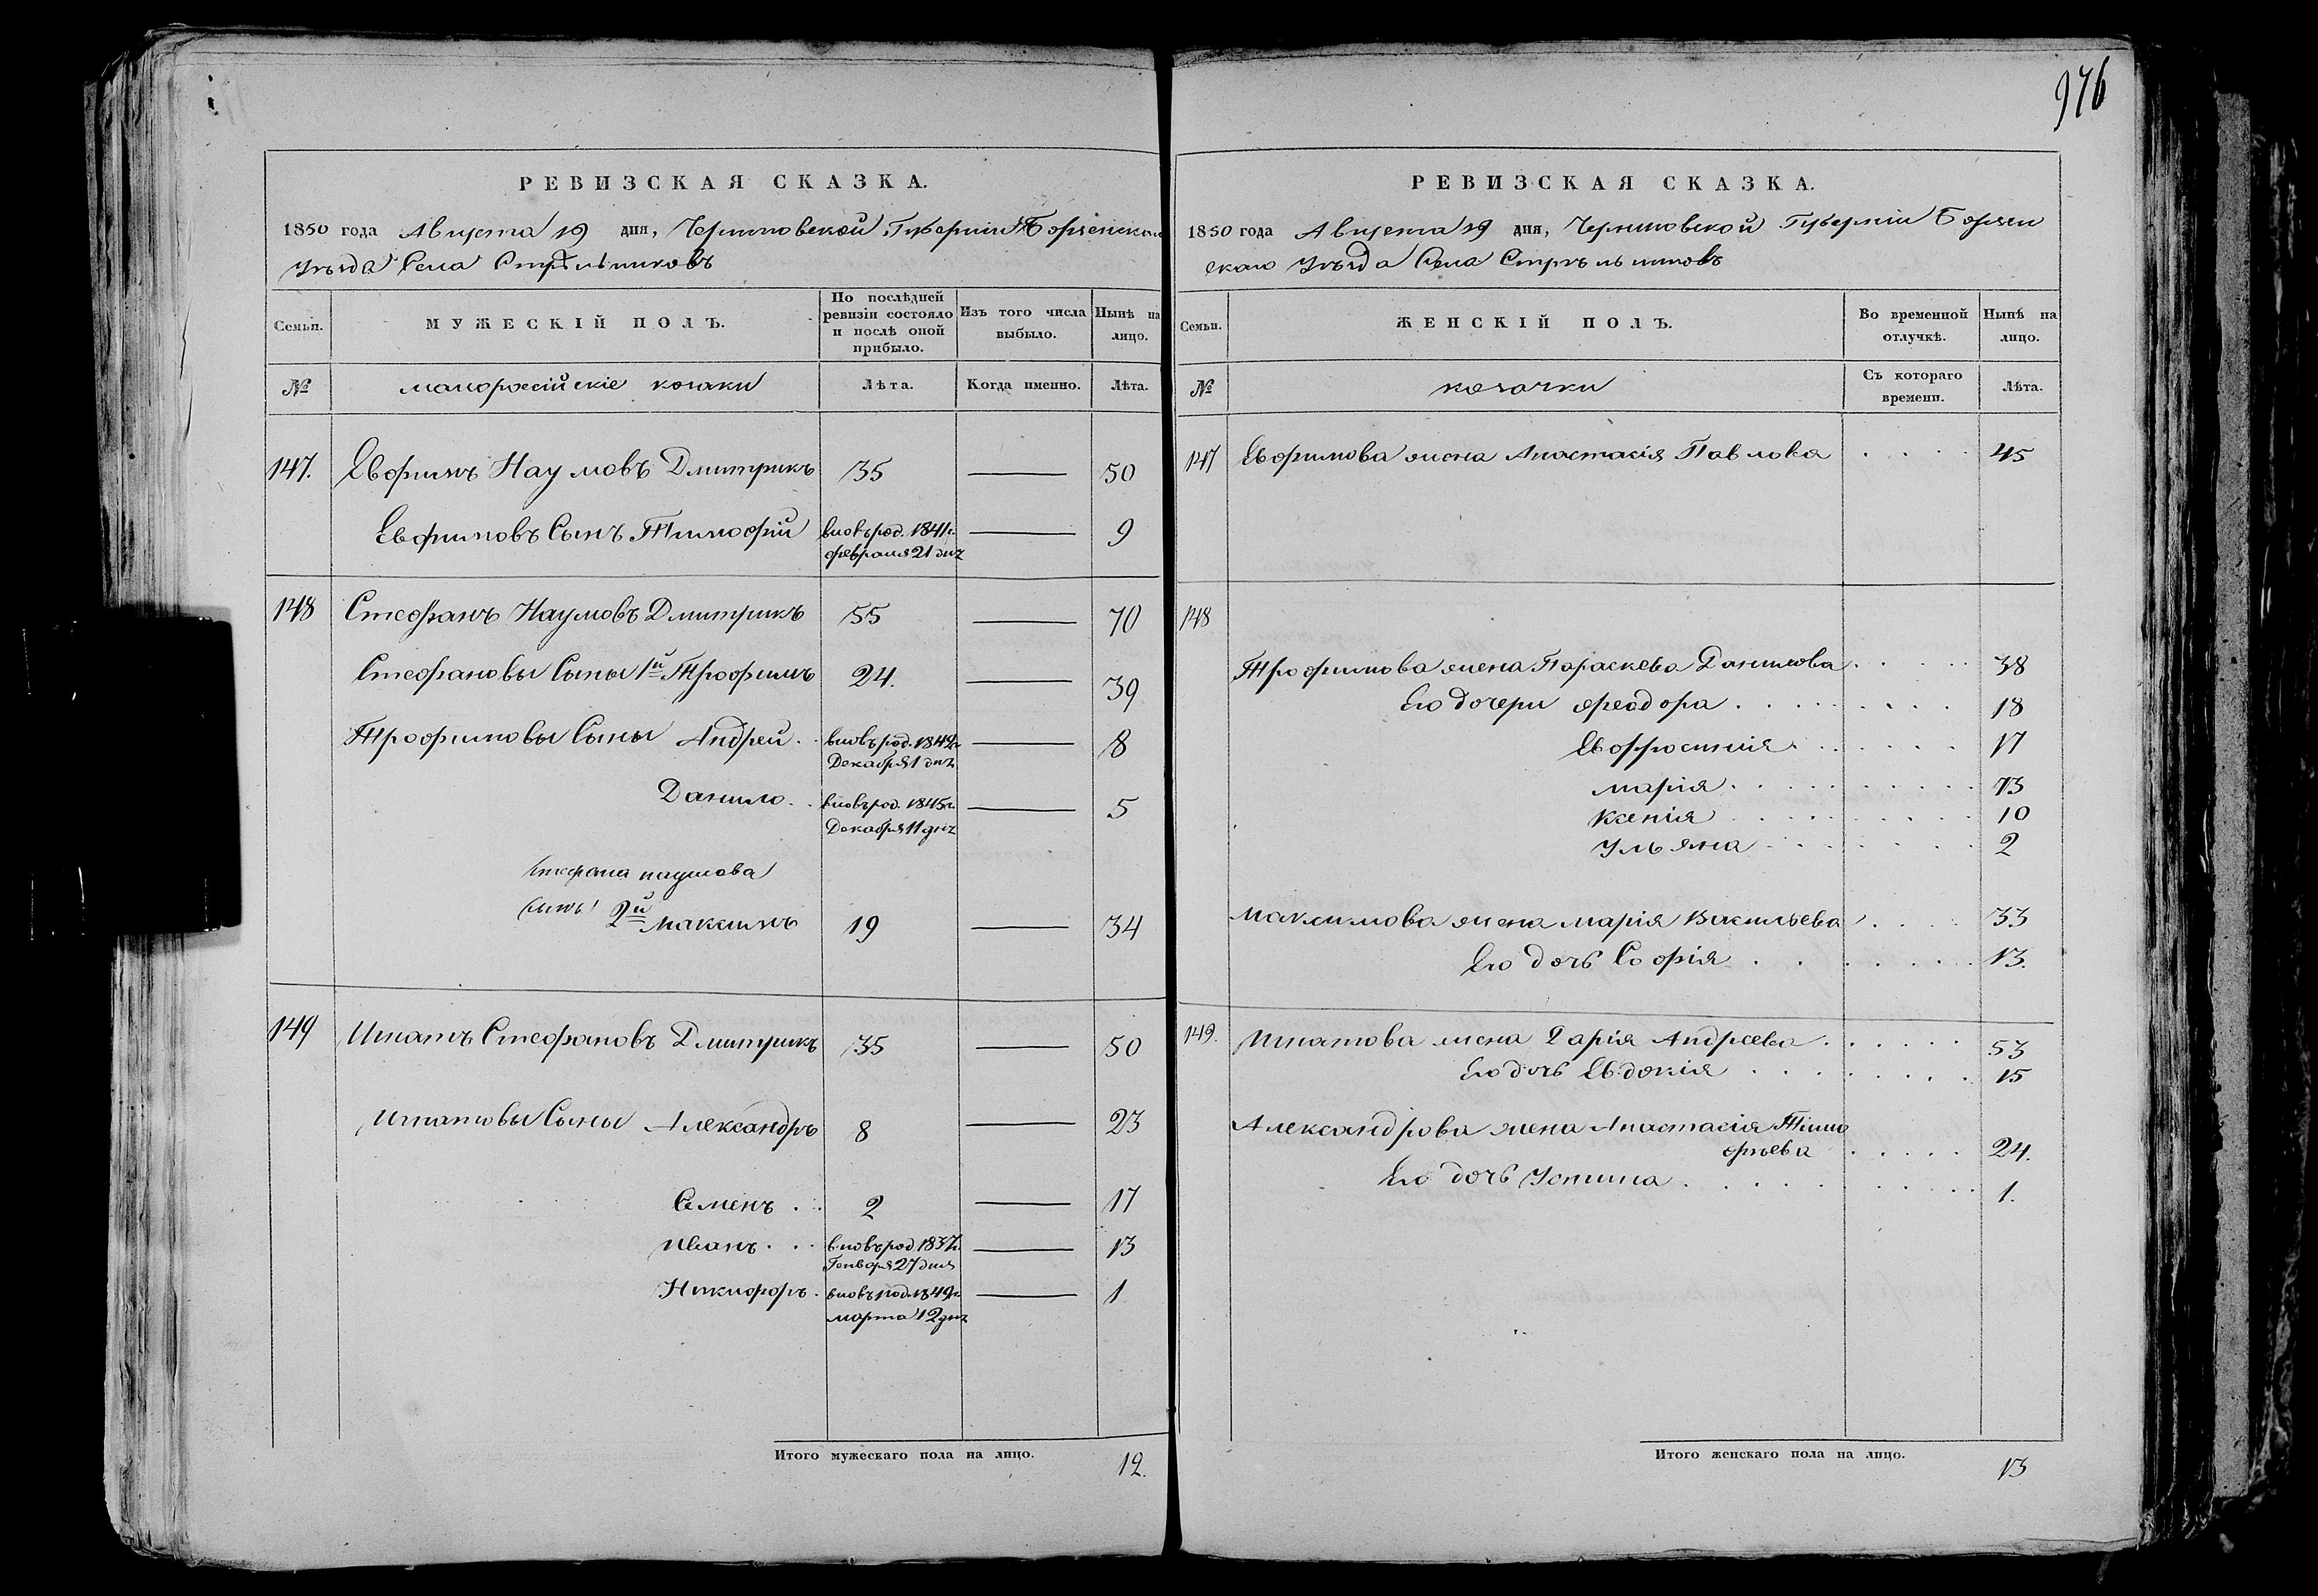 976
РЕВИЗСКАЯ СКАЗКА.
1850 года Августа 19 дня, Черниговской Губернии Борзенскаго
Уѣзда Села Стрѣльниковъ
Семьи.
МУЖЕСКІЙ ПОЛЪ.
По послѣдней ревизіи состояло и послѣ оной прибыло.
Изъ того числа выбыло.
Нынѣ на лицо.
№
малороссійскіе козаки
Лѣта.
Когда именно.
Лѣта.
147. Евфимъ Наумовъ Дмитрикъ 35 50
Евфимовъ Сынъ Тимофій вновь род. 1841 г. 9
февраля 21 дня
148 Стефанъ Наумовъ Дмитрикъ 55 70
Стефановы Сыны 1й Трофимъ 24. 39
Трофимовы Сыны Андрей вновь род. 1842 г. 8
Декабря 1 дня
Данило вновь род. 1845 г. 5
Декабря 11 дня
Стефана наумова
сынъ 2й максимъ 19 34
149 Игнатъ Стефановъ Дмитрикъ 35 50
Игнатовы Сыны Александръ 8 23
Семенъ 2 17
Иванъ вновь род. 1837 г. 13
Генворя 27 дня
Никифоръ вновь род. 1849 г. 1
марта 12 дня
Итого мужескаго пола на лицо. 12.
РЕВИЗСКАЯ СКАЗКА.
1850 года Августа 19 дня, Черниговской Губерніи Борзен
скаго Уѣзда Села Стрѣльниковъ
Семьи.
ЖЕНСКІЙ ПОЛЪ.
Во временной отлучкѣ.
Нынѣ на лицо.
№
козачки
Съ котораго времени.
Лѣта.
147 Евфимова жена Анастасія Павлова 45
148
Трофимова жена Параскева Данилова 38
Его дочери феодора 18
Евфросинія 17
марія 13
Ксенія 10
Ульяна 2
максимова жена марія Васильева 33
Его дочь Софія 13.
149. Игнатова жена Дарія Андреева 53
Его дочь Евдокія 15
Александрова жена Анастасія Тимо
фѣева 24.
Его дочь Устина 1.
Итого женскаго пола на лицо. 13